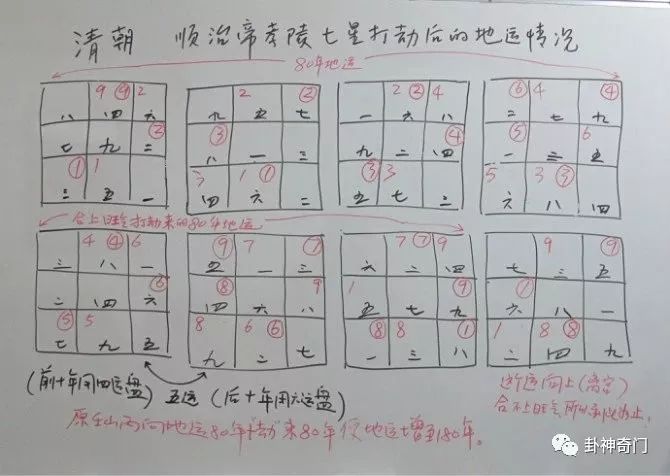 清朝 顺治帝孝陵七星打劫后的地运情况
80年地运
9 ⑨ 2
八 四 六
②
七 九 二
① 1
三 五 一
2 ②
九 五 七
③
八 一 三
3 1 ①
四 六 二
2 ② 4
一 六 八
④
九 二 四
③ 3
五 七 三
⑥ 4 ④
二 七 九
⑤ 6
一 三 五
5 3 ③
六 八 四
合上旺气打劫来的80年地运
4 ④ 6
三 八 一
⑥
二 四 六
⑤ 5
七 九 五
⑨ 7 ⑦
五 一 三
⑧ 9
四 六 八
8 6 ⑥
九 二 七
7 ⑦ 9
六 二 四
1 ⑨
五 七 九
⑧ 8 ①
一 三 八
9 ⑨
七 三 五
①
六 八 一
1 8 ⑧
二 四 九
(前十年用四运盘) 五运 (后十年用六运盘)
运向上(离宫)
合不上旺气 所以 为止.
原壬山丙向地运80年 劫来80年便地运增至180年。
卦神奇门